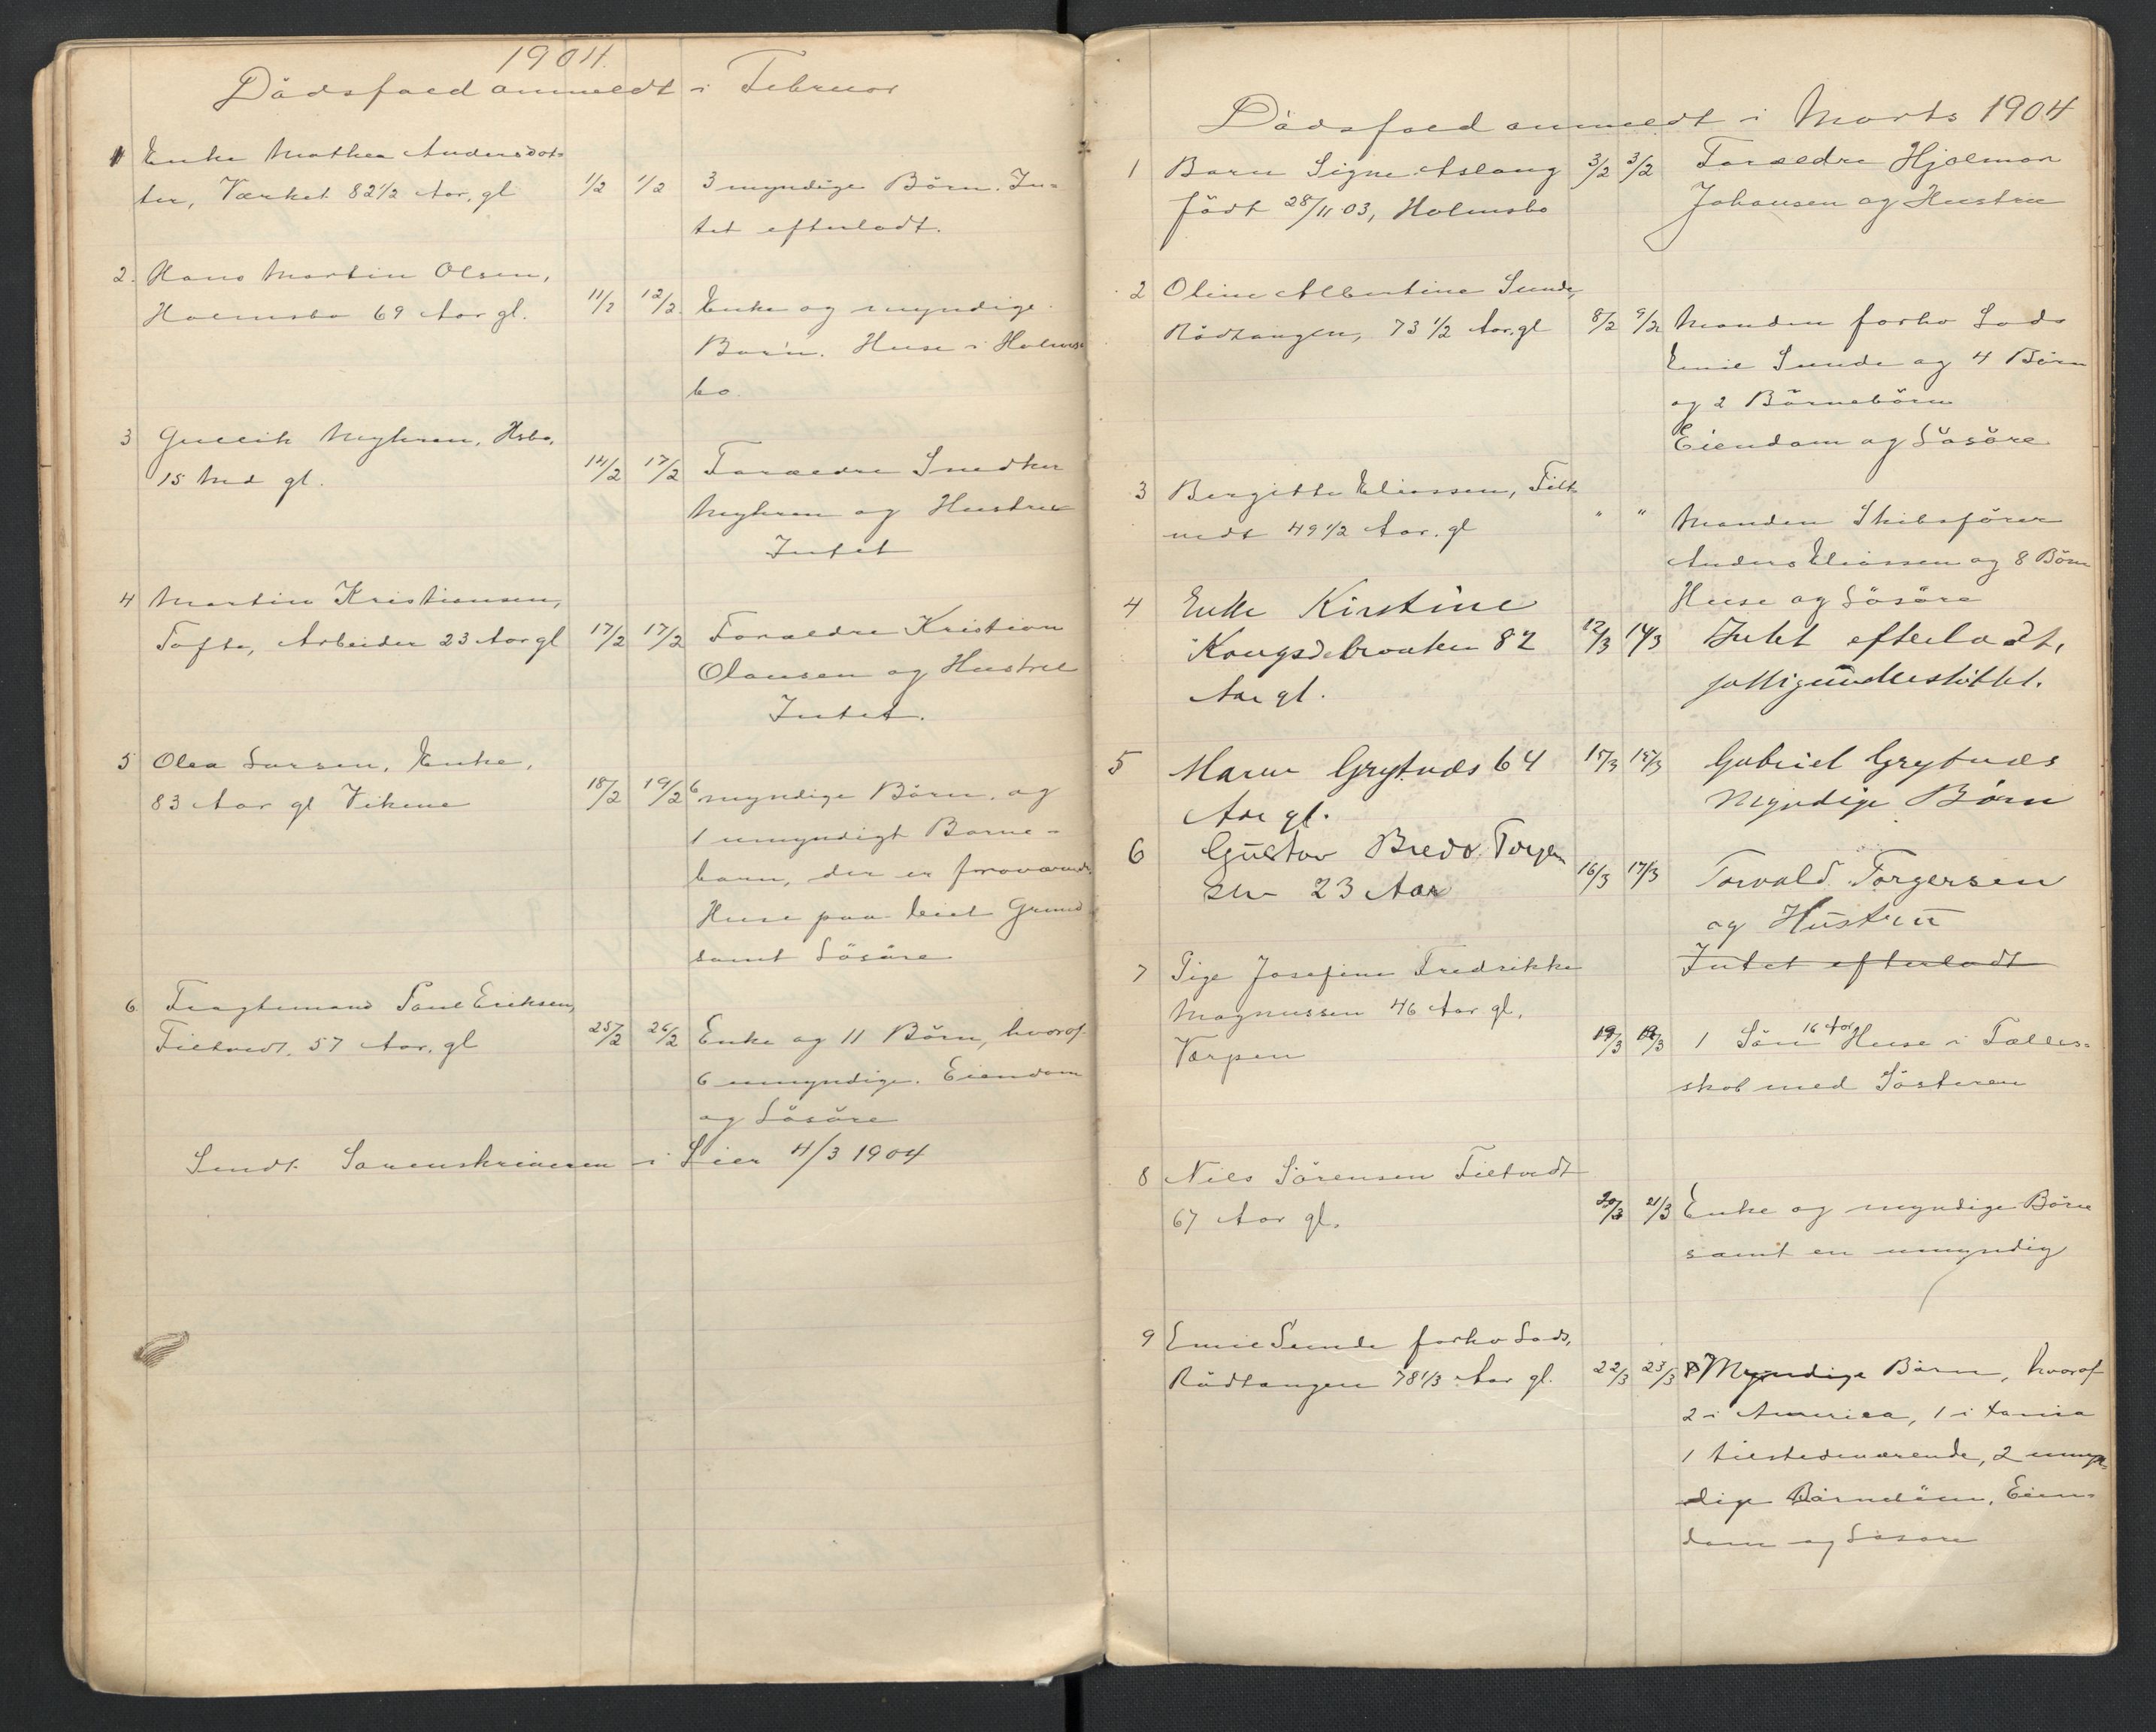 1904.
Dödsfald anmeldt i Februar
1 Enke Mathea Andersdot-
ter, Værket 82 1/2 Aar. gl 1/2 1/2 3 myndige Börn. In-
tet efterladt.
2. Hans Martin Olsen,
Holmsbo 69 Aar gl. 11/2 12/2 Enke og myndige
Börn. Huse i Holms-
bo.
3 Gullik Myhren, Hsbo,
15 Md gl. 14/2 17/2 Forældre Snedker
Myhren og Hustru
Intet
4 Martin Kristiansen,
Tofte, Arbeider 23 Aar gl 17/2 17/2 Forældre Kristian
Olausen og Hustru
Intet.
5 Olea Larsen, Enke,
83 Aar gl Vikene 18/2 19/2 6 myndige Börn, og
1 umyndigt Barne-
barn, der er fraværende.
Huse paa leiet Grund
samt Lösöre
6 Fragtemand Paul Eriksen,
Filtvedt. 57 Aar. gl 25/2 26/2 Enke og 11 Börn, hvoraf
6 umyndige. Eiendom
og Lösöre
Sendt Sorenskriveren i Lier 4/3 1904
Dödsfald anmeldt i Marts 1904
1 Barn Signe Aslaug 3/2 3/2 Forældre Hjalmar
födt 28/11 03, Holmsbo Johansen og Hustru
2 Oline Albertine Sunde,
Rödtangen, 73 1/2 Aar. gl 8/2 9/2 Manden forhv Lods
Emil Sunde og 4 Börn
og 2 Börnebörn
Eiendom og Lösöre
3 Bergitte Eliassen, Filt-
vedt 49 1/2 Aar. gl " " Manden Skibsförer
Anders Eliassen og 8 Börn
Huse og Lösöre
4 Enke Kirstine
Kongsdelbraaten 82 12/3 14/3 Intet efterladt,
Aar gl. fattigunderstöttet.
5 Maren Grytnæs 64 15/3 15/3 Gabriel Grytnæs
Aar gl. Myndige Börn
6 Gustav Bredo Torger
sen 23 Aar 16/3 17/3 Torvald Torgersen
og Hustru
Intet efterladt
7 Pige Josefine Fredrikke
Magnussen 46 Aar gl,
Værpen 19/3 19/3 1 Sön 16 Aar Huse i Fælles-
skab med Sösteren
8 Nils Sörensen Filtvedt
67 Aar gl. 20/3 21/3 Enke og myndige Börn
samt en umyndig
9 Emil Sunde forhv Lods,
Rödtangen 78 1/3 Aar gl. 22/3 23/3 Myndige Börn, hvoraf
2 i America, 1 i
1 tilstedeværende, 2 umyn-
dige Börnebörn, Eien-
dom og Lösöre